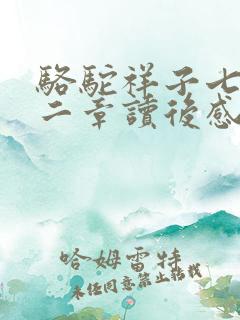 駱駝祥子七
二章讀後感
哈姆雷特
未经同意禁止转载